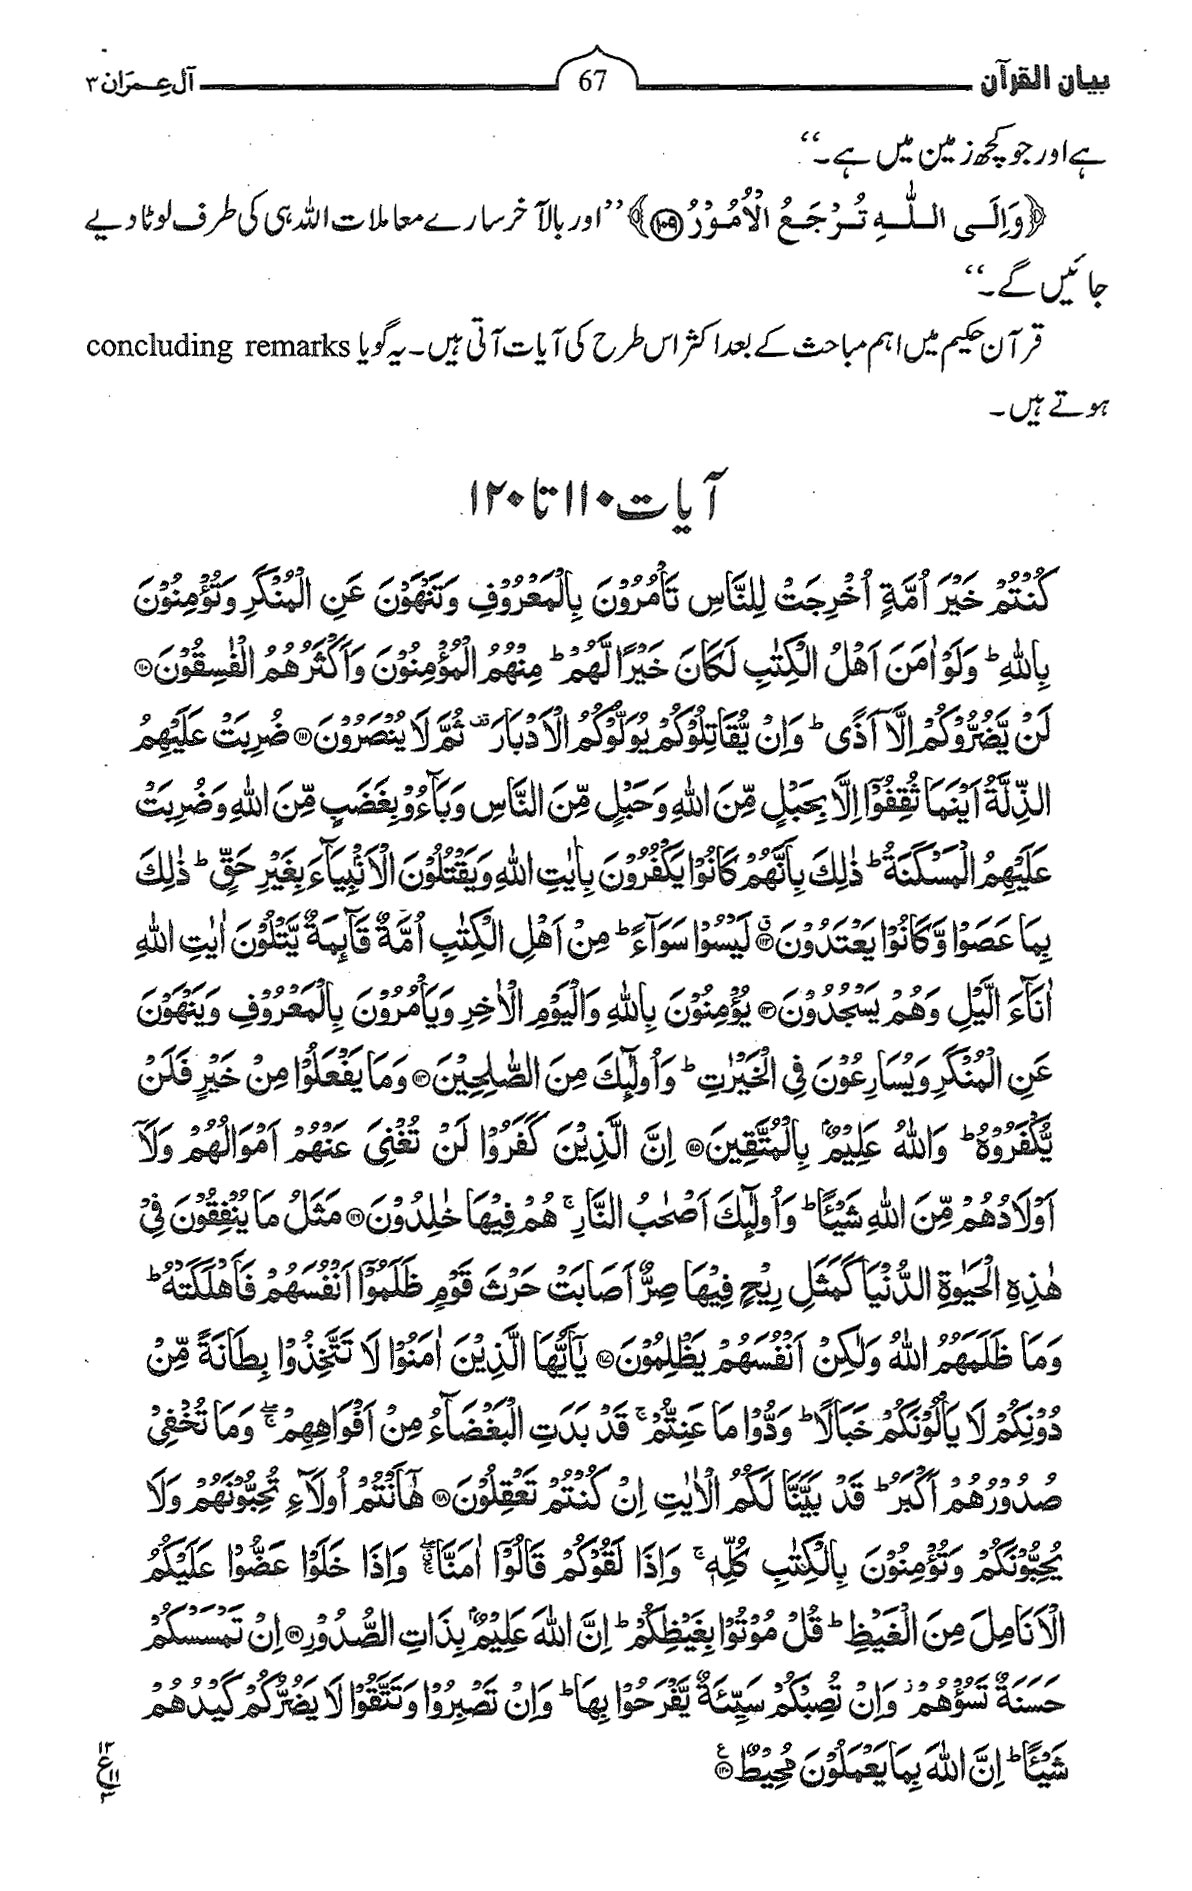 بیان القرآن 67 آلِ عِمرَان ۳
ہے اور جو کچھ زمین میں ہے۔‘‘
﴿وَاِلَی اللّٰہِ تُرْجَعُ الْاُمُوْرُ ﴿۱۰۹﴾﴾ ’’اور بالآخر سارے معاملات اللہ ہی کی طرف لوٹا دیے
جائیں گے۔‘‘
قرآن حکیم میں اہم مباحث کے بعد اکثر اس طرح کی آیات آتی ہیں۔ یہ گویا concluding remarks
ہوتے ہیں۔
آیات ۱۱۰ تا ۱۲۰
کُنْتُمْ خَیْرَ اُمَّةٍ اُخْرِجَتْ لِلنَّاسِ تَاْمُرُوْنَ بِالْمَعْرُوْفِ وَتَنْهَوْنَ عَنِ الْمُنْکَرِ وَتُؤْمِنُوْنَ
بِاللّٰهِ ؕ وَلَوْ اٰمَنَ اَهْلُ الْکِتٰبِ لَکَانَ خَیْرًا لَّهُمْ ؕ مِنْهُمُ الْمُؤْمِنُوْنَ وَاَکْثَرُهُمُ الْفٰسِقُوْنَ ﴿۱۱۰﴾
لَنْ یَّضُرُّوْکُمْ اِلَّاۤ اَذًی ؕ وَاِنْ یُّقَاتِلُوْکُمْ یُوَلُّوْکُمُ الْاَدْبَارَ ۟ ثُمَّ لَا یُنْصَرُوْنَ ﴿۱۱۱﴾ ضُرِبَتْ عَلَیْهِمُ
الذِّلَّةُ اَیْنَ مَا ثُقِفُوْۤا اِلَّا بِحَبْلٍ مِّنَ اللّٰهِ وَحَبْلٍ مِّنَ النَّاسِ وَبَآءُوْ بِغَضَبٍ مِّنَ اللّٰهِ وَضُرِبَتْ
عَلَیْهِمُ الْمَسْکَنَةُ ؕ ذٰلِکَ بِاَنَّهُمْ کَانُوْا یَکْفُرُوْنَ بِاٰیٰتِ اللّٰهِ وَیَقْتُلُوْنَ الْاَنْۢبِیَآءَ بِغَیْرِ حَقٍّ ؕ ذٰلِکَ
بِمَا عَصَوْا وَّکَانُوْا یَعْتَدُوْنَ ﴿۱۱۲﴾ۗ لَیْسُوْا سَوَآءً ؕ مِنْ اَهْلِ الْکِتٰبِ اُمَّةٌ قَآئِمَةٌ یَّتْلُوْنَ اٰیٰتِ اللّٰهِ
اٰنَآءَ الَّیْلِ وَهُمْ یَسْجُدُوْنَ ﴿۱۱۳﴾ یُؤْمِنُوْنَ بِاللّٰهِ وَالْیَوْمِ الْاٰخِرِ وَیَاْمُرُوْنَ بِالْمَعْرُوْفِ وَیَنْهَوْنَ
عَنِ الْمُنْکَرِ وَیُسَارِعُوْنَ فِی الْخَیْرٰتِ ؕ وَاُولٰٓئِکَ مِنَ الصّٰلِحِیْنَ ﴿۱۱۴﴾ وَمَا یَفْعَلُوْا مِنْ خَیْرٍ فَلَنْ
یُّکْفَرُوْهُ ؕ وَاللّٰهُ عَلِیْمٌۢ بِالْمُتَّقِیْنَ ﴿۱۱۵﴾ اِنَّ الَّذِیْنَ کَفَرُوْا لَنْ تُغْنِیَ عَنْهُمْ اَمْوَالُهُمْ وَلَاۤ
اَوْلَادُهُمْ مِّنَ اللّٰهِ شَیْئًا ؕ وَاُولٰٓئِکَ اَصْحٰبُ النَّارِ ۚ هُمْ فِیْهَا خٰلِدُوْنَ ﴿۱۱۶﴾ مَثَلُ مَا یُنْفِقُوْنَ فِیْ
هٰذِهِ الْحَیٰوةِ الدُّنْیَا کَمَثَلِ رِیْحٍ فِیْهَا صِرٌّ اَصَابَتْ حَرْثَ قَوْمٍ ظَلَمُوْۤا اَنْفُسَهُمْ فَاَهْلَکَتْهُ ؕ
وَمَا ظَلَمَهُمُ اللّٰهُ وَلٰکِنْ اَنْفُسَهُمْ یَظْلِمُوْنَ ﴿۱۱۷﴾ یٰۤاَیُّهَا الَّذِیْنَ اٰمَنُوْا لَا تَتَّخِذُوْا بِطَانَةً مِّنْ
دُوْنِکُمْ لَا یَاْلُوْنَکُمْ خَبَالًا ؕ وَدُّوْا مَا عَنِتُّمْ ۚ قَدْ بَدَتِ الْبَغْضَآءُ مِنْ اَفْوَاهِهِمْ ۖۚ وَمَا تُخْفِیْ
صُدُوْرُهُمْ اَکْبَرُ ؕ قَدْ بَیَّنَّا لَکُمُ الْاٰیٰتِ اِنْ کُنْتُمْ تَعْقِلُوْنَ ﴿۱۱۸﴾ هٰۤاَنْتُمْ اُولَآءِ تُحِبُّوْنَهُمْ وَلَا
یُحِبُّوْنَکُمْ وَتُؤْمِنُوْنَ بِالْکِتٰبِ کُلِّهٖ ۚ وَاِذَا لَقُوْکُمْ قَالُوْۤا اٰمَنَّا ۖۚ وَاِذَا خَلَوْا عَضُّوْا عَلَیْکُمُ
الْاَنَامِلَ مِنَ الْغَیْظِ ؕ قُلْ مُوْتُوْا بِغَیْظِکُمْ ؕ اِنَّ اللّٰهَ عَلِیْمٌۢ بِذَاتِ الصُّدُوْرِ ﴿۱۱۹﴾ اِنْ تَمْسَسْکُمْ
حَسَنَةٌ تَسُؤْهُمْ ۫ وَاِنْ تُصِبْکُمْ سَیِّئَةٌ یَّفْرَحُوْا بِهَا ؕ وَاِنْ تَصْبِرُوْا وَتَتَّقُوْا لَا یَضُرُّکُمْ کَیْدُهُمْ
شَیْئًا ؕ اِنَّ اللّٰهَ بِمَا یَعْمَلُوْنَ مُحِیْطٌ ﴿۱۲۰﴾ ع
۱۲ ع ۱۱ ۳